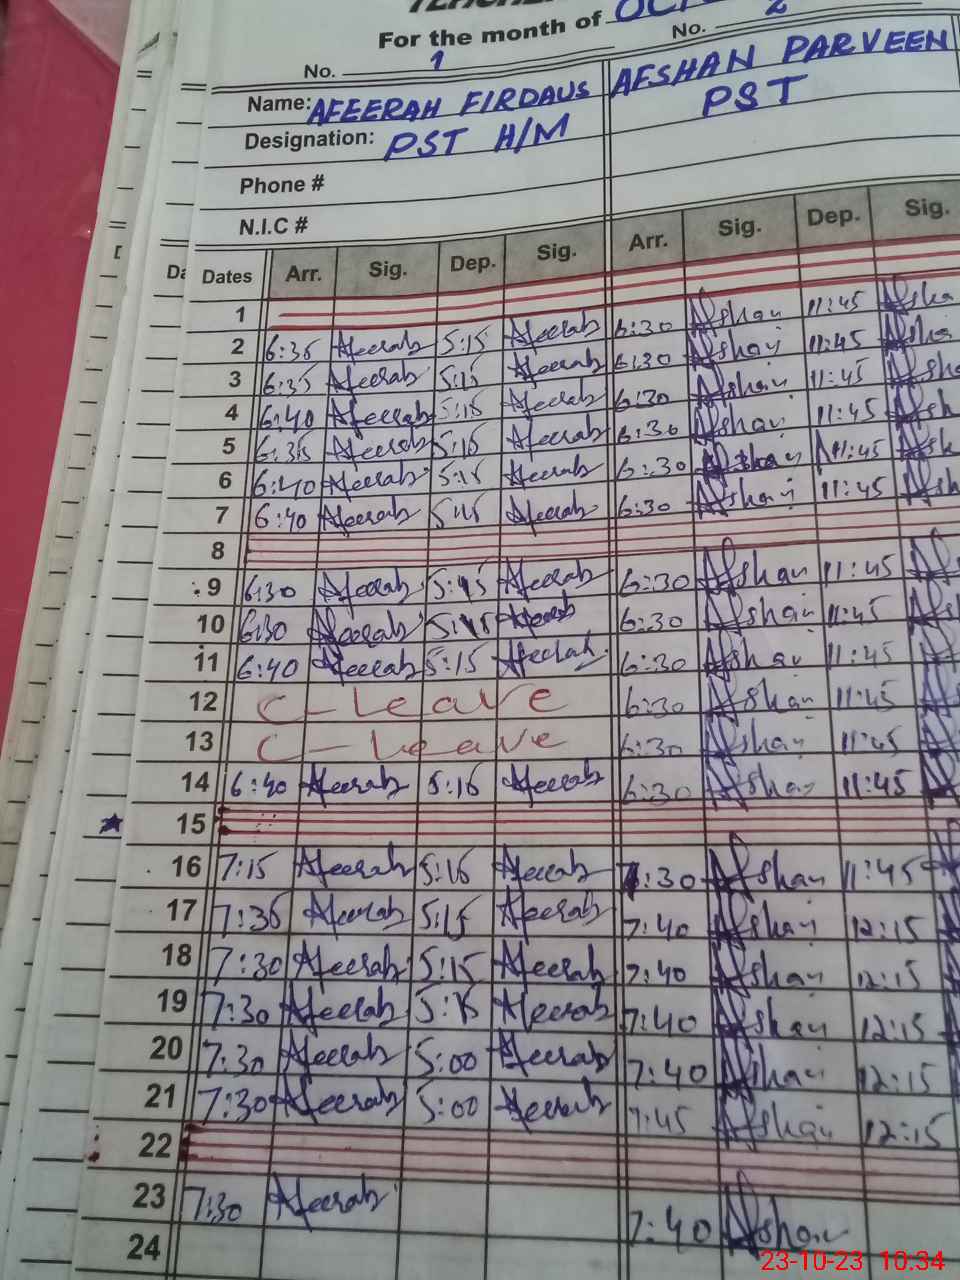 For the month of
No. 1 No. 2
Name: AFEERAH FIRDAUS AFSHAN PARVEEN
Designation: PST H/M PST
Phone #
N.I.C #
Dates Arr. Sig. Dep. Sig. Arr. Sig. Dep. Sig.
1
2 6:35 Afeerah 5:15 Afeerah 6:30 Afshan 11:45
3 6:35 Afeerah 5:15 Afeerah 6:30 Afshan 11:45
4 6:40 Afeerah 5:15 Afeerah 6:30 Afshan 11:45
5 6:35 Afeerah 5:15 Afeerah 6:30 Afshan 11:45
6 6:40 Afeerah 5:15 Afeerah 6:30 Afshan 11:45
7 6:40 Afeerah Afeerah 6:30 Afshan 11:45
8
9 6:30 Afeerah Afeerah 6:30 Afshan 11:45
10 6:30 Afeerah Afeerah 6:30 Afshan 11:45
11 6:40 Afeerah 5:15 Afeerah 6:30 Afshan 11:45
12 C-Leave 6:30 Afshan 11:45
13 C-Leave 6:30 Afshan 11:45
14 6:40 Afeerah 5:15 Afeerah 6:30 Afshan 11:45
15
16 7:15 Afeerah 5:15 Afeerah 7:30 Afshan 11:45
17 7:35 Afeerah 5:15 Afeerah 7:40 Afshan 12:15
18 7:30 Afeerah 5:15 Afeerah 7:40 Afshan 12:15
19 7:30 Afeerah 5:15 Afeerah 7:40 Afshan 12:15
20 7:30 Afeerah 5:00 Afeerah 7:40 Afshan 12:15
21 7:30 Afeerah 5:00 Afeerah 7:45 Afshan 12:15
22
23 7:30 Afeerah 7:40 Afshan
24
23-10-23 10:34